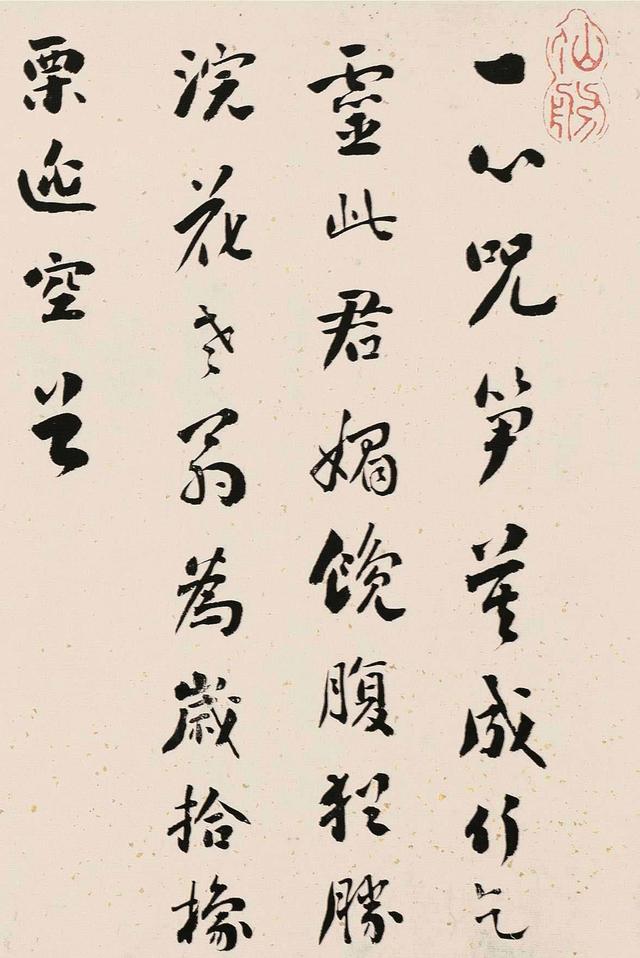 一心咒筍莫成竹乞
靈此君媚饞腹猶勝
浣花老翁為歲拾橡
栗逃空谷